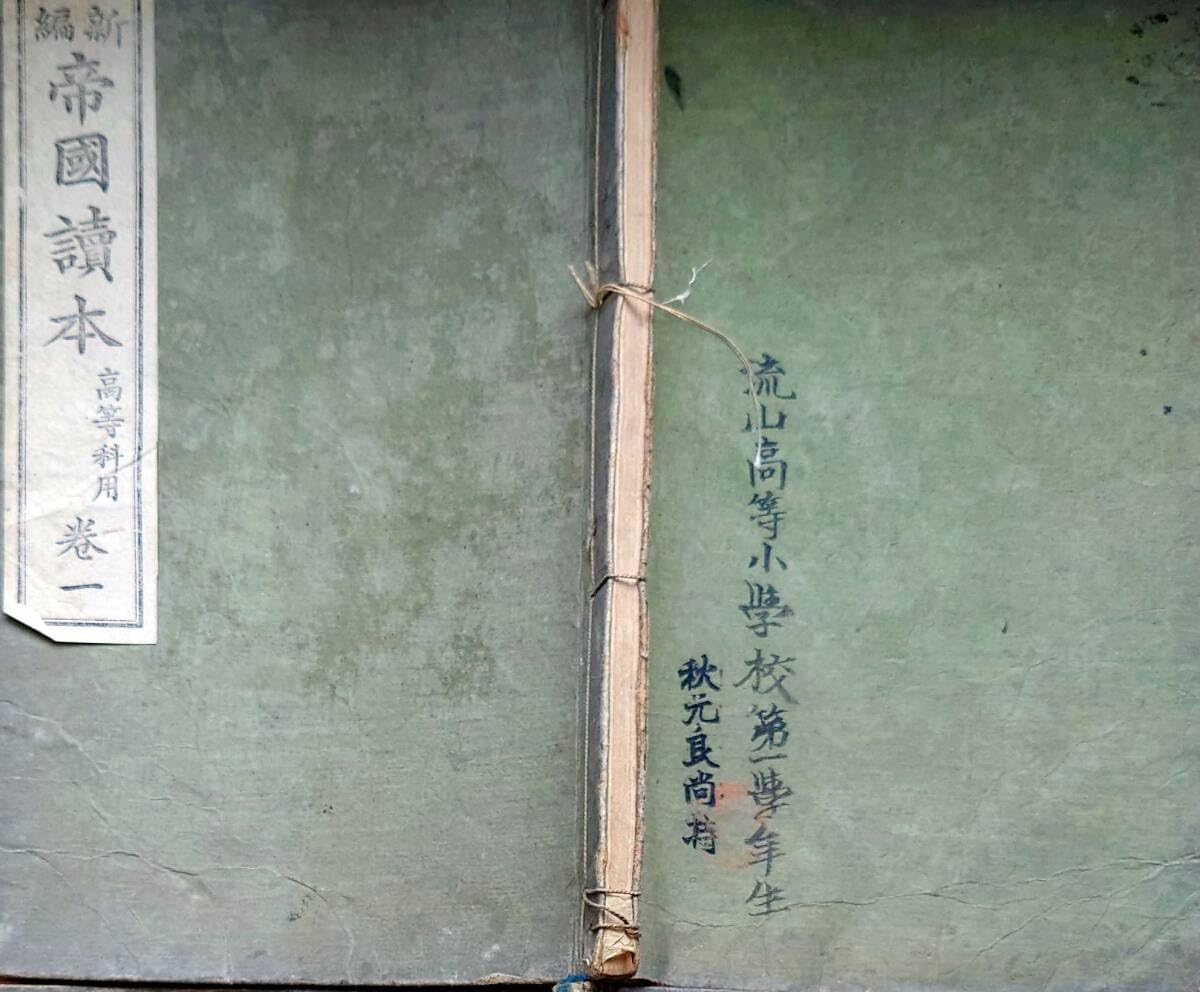 新編
帝國讀本
高等科用
卷一
流山高等小學校第一學年生
秋元良尚